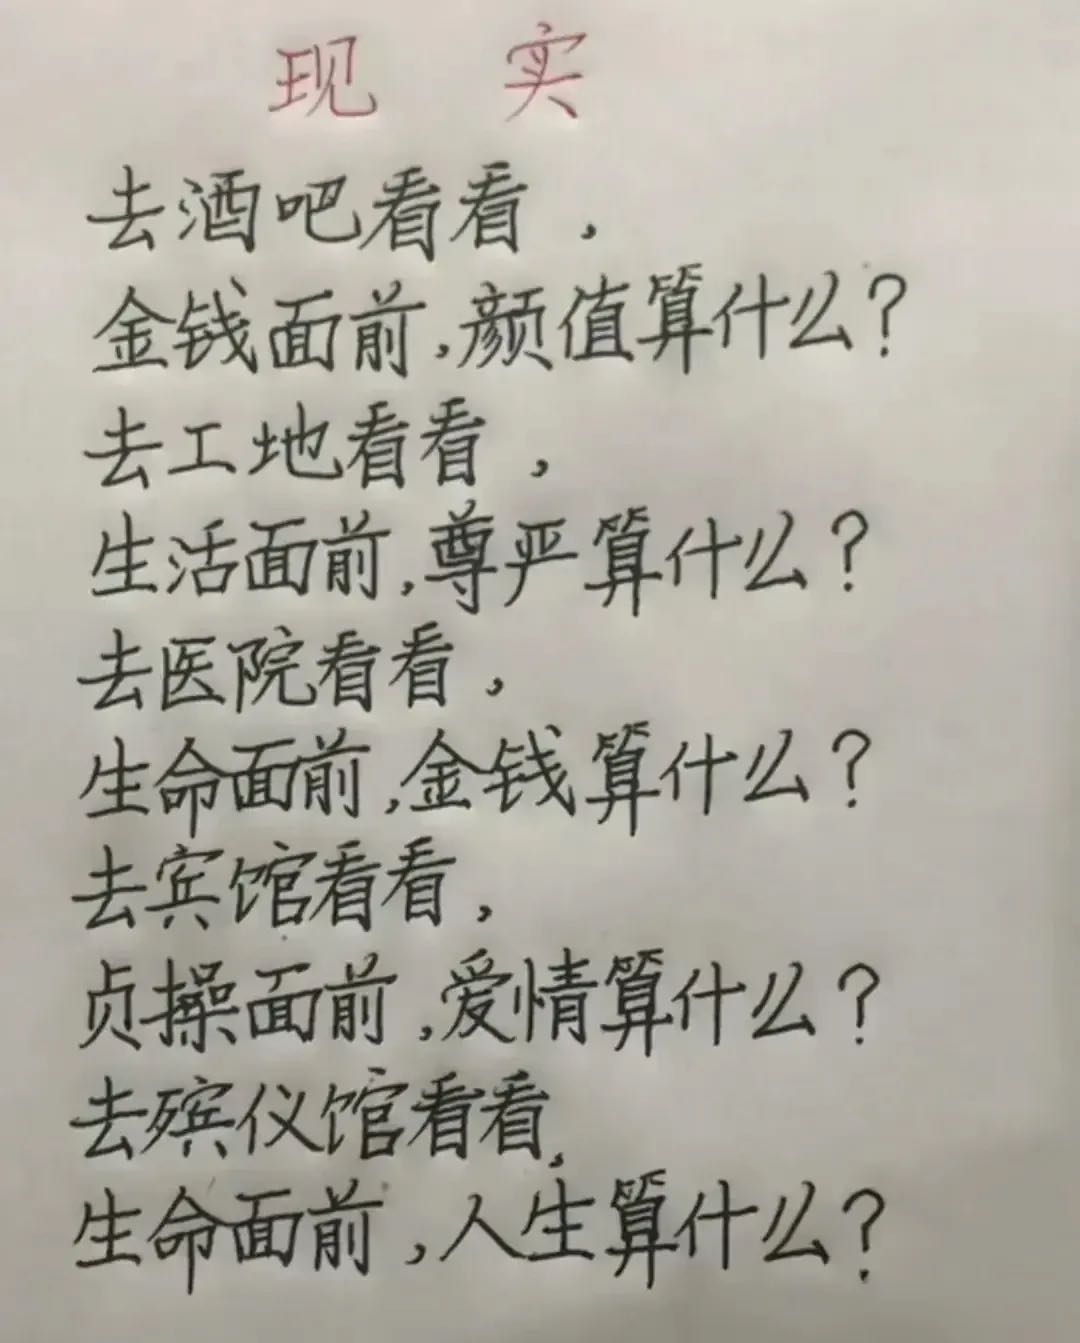 现 实
去酒吧看看，
金钱面前，颜值算什么？
去工地看看，
生活面前，尊严算什么？
去医院看看，
生命面前，金钱算什么？
去宾馆看看，
贞操面前，爱情算什么？
去殡仪馆看看，
生命面前，人生算什么？